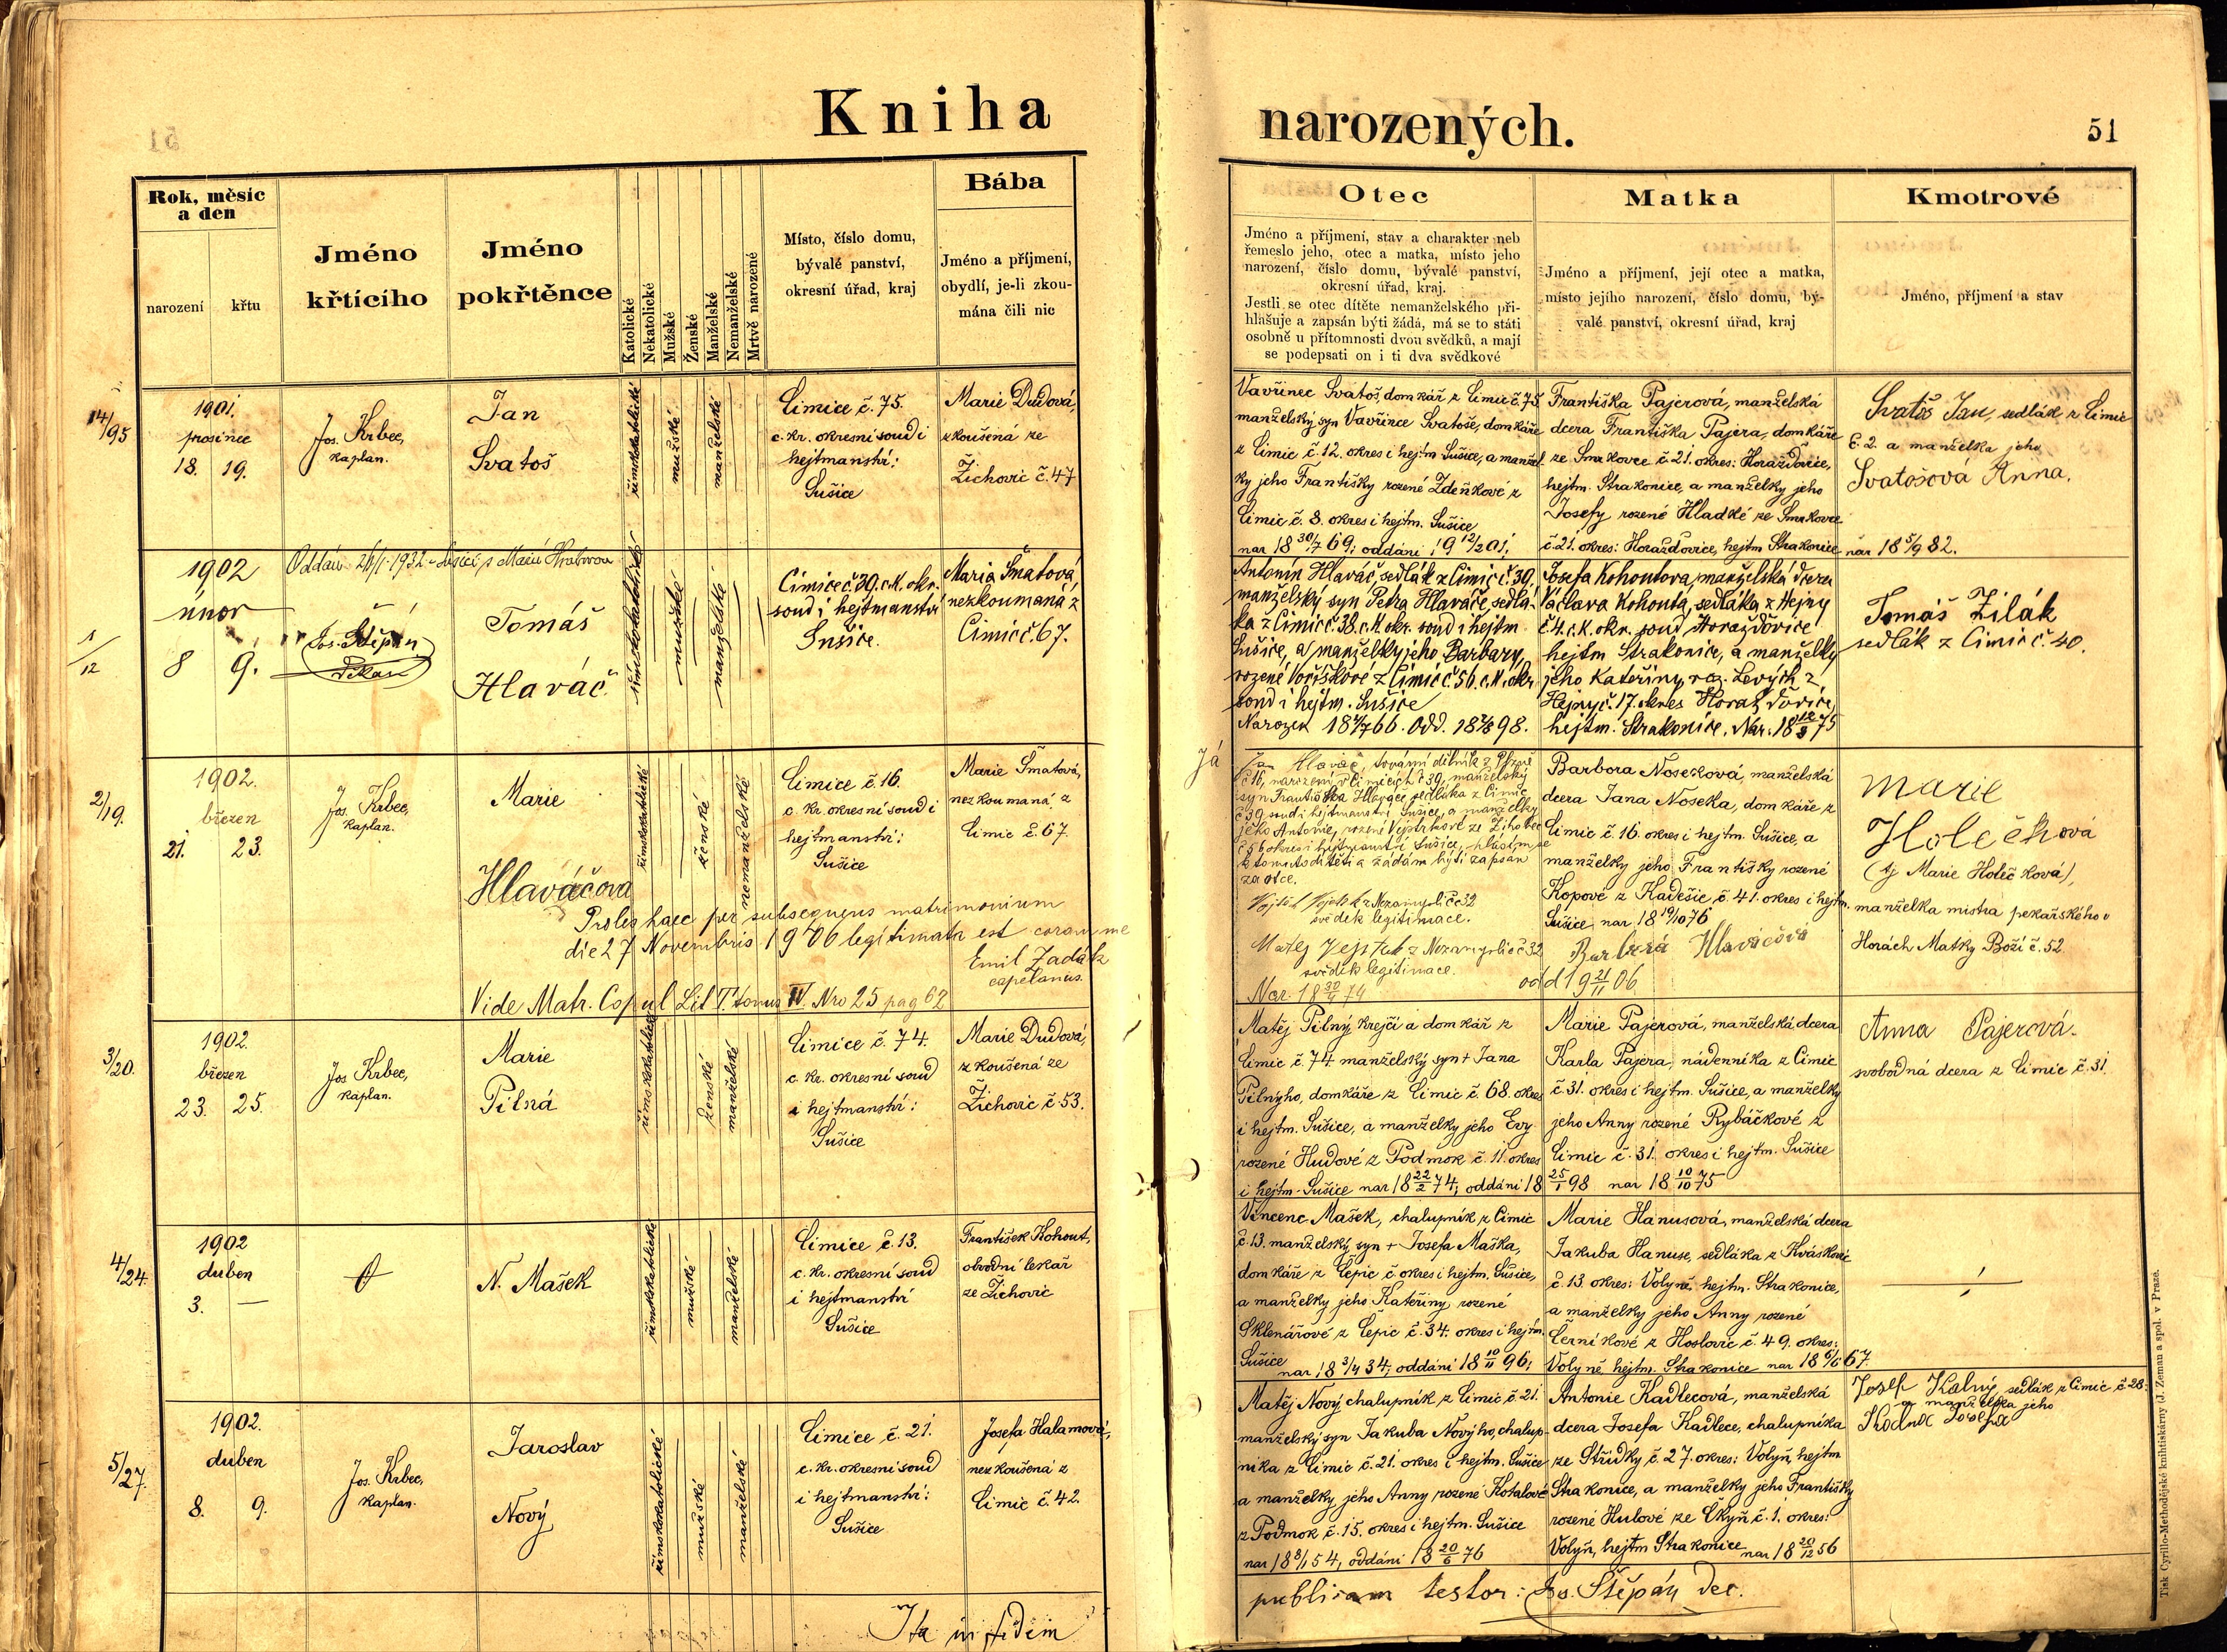 Kniha
narozených.
51
Rok, měsíc
a den
narození
křtu
Jméno
křtícího
Jméno
pokřtěnce
Katolické
Nekatolické
Mužské
Ženské
Manželské
Nemanželské
Mrtvě narozené
Místo, číslo domu,
bývalé panství,
okresní úřad, kraj
Bába
Jméno a příjmení,
obydlí, je-li zkou-
mána čili nic
Otec
Jméno a příjmení, stav a charakter neb
řemeslo jeho, otec a matka, místo jeho
narození, číslo domu, bývalé panství,
okresní úřad, kraj.
Jestli se otec dítěte nemanželského při-
hlašuje a zapsán býti žádá, má se to státi
osobně u přítomnosti dvou svědků, a mají
se podepsati on i ti dva svědkové
Matka
Jméno a příjmení, její otec a matka,
místo jejího narození, číslo domu, bý-
valé panství, okresní úřad, kraj
Kmotrové
Jméno, příjmení a stav
14/95
1901.
prosinec
18. 19.
Jos. Krbec,
kaplan.
Jan
Svatoš
římskokatolické
mužské
manželské
Čimice č. 75.
c. kr. okresní soud i
hejtmanství:
Sušice
Marie Dudová,
zkoušená ze
Žichovic č. 47
Vavřinec Svatoš, domkář z Čimic č. 75,
manželský syn Vavřince Svatoše, domkáře
z Čimic č. 12. okres i hejtm. Sušice, a manžel-
ky jeho Františky rozené Zdeňkové z
Čimic č. 8. okres i hejtm. Sušice
nar 18 30/7 69; oddáni 19 12/2 01;
Františka Pajerová, manželská
dcera Františka Pajera, domkáře
ze Smrkovce č. 21. okres: Horažďovice,
hejtm. Strakonice, a manželky jeho
Josefy rozené Hladké ze Smrkovce
č. 21. okres: Horažďovice, hejtm Strakonice
nar 18 5/9 82.
Svatoš Jan, sedlák z Čimic
č. 2. a manželka jeho
Svatošová Anna.
1/12
1902
únor
8 9.
Oddán 26/1 1932 v Sušici s Marií
Jos. Štěpán
děkan
Tomáš
Hlaváč
římskokatolické
mužské
manželské
Čimice č. 39. c. k. okr.
soud i hejtmanství
Sušice.
Maria Šmatová,
nezkoumaná z
Čimic č. 67.
Antonín Hlaváč, sedlák z Čimic č. 39,
manželský syn Petra Hlaváče, sedlá-
ka z Čimic č. 38. c. k. okr. soud i hejtm
Sušice, a manželky jeho Barbary,
rozené Voříškové z Čimic č. 56. c. k. okr.
soud i hejtm. Sušice
Narozen 18 4/7 66. Odd. 18 7/8 98.
Josefa Kohoutova, manželská dcera
Václava Kohouta, sedláka z Hejny
č. 4. c. k. okr. soud Horažďovice
hejtm Strakonice, a manželky
jeho Kateřiny, roz. Levých z
Hejny č. 17. okres Horažďovice,
hejtm. Strakonice. Nar. 18 12/3 75
Tomáš Žilák
sedlák z Čimic č. 40.
2/19.
1902.
březen
21. 23.
Jos. Krbec,
kaplan.
Marie
Hlaváčova
římskokatolické
ženské
nemanželské
Čimice č. 16.
c. kr. okresní soud i
hejtmanství:
Sušice
Marie Šmatová,
nezkoumaná z
Čimic č. 67.
Proles haec per subsequens matrimonium
die 27 Novembris 1906 legitimata est coram me
Emil Zadák
capelanus.
Vide Matr. Copul Lit T. tomus IV. Nro 25 pag 62
Já
Jan Hlaváč, tovární dělník z Plzně
č 16, narozený v Čimicích č 39, manželský
syn Františka Hlaváče sedláka z Čimic
č 39 soud i hejtmanství Sušice, a manželky
jeho Antonie, rozené Vejstrkové ze Žihobec
č 56 okres i hejtmanství Sušice, hlásím se
k tomuto dítěti a žádám býti zapsán
za otce.
svědek legitimace.
Matěj Vejstrk z Nezamyslic č 32
svědek legitimace.
Nar. 18 30/4 74
Barbora Nosková, manželská
dcera Jana Noseka, domkáře z
Čimic č. 16. okres i hejtm. Sušice, a
manželky jeho Františky rozené
Kopové z Kadešic č. 41. okres i hejtm.
Sušice, nar 18 19/10 76
Barbora Hlaváčová
odd 19 21/11 06
Marie
Holečková
(tj Marie Holečková),
manželka mistra pekařského v
Horách Matky Boží č. 52.
3/20.
1902.
březen
23. 25.
Jos Krbec,
kaplan.
Marie
Pilná
římskokatolické
ženské
manželské
Čimice č. 74.
c. kr. okresní soud
i hejtmanství:
Sušice
Marie Dudová,
zkoušená ze
Žichovic č 53.
Matěj Pilný krejčí a domkář z
Čimic č. 74 manželský syn + Jana
Pilnýho, domkáře z Čimic č. 68. okres
i hejtm. Sušice, a manželky jeho Evy
rozené Hudové z Podmok č. 11. okres
i hejtm. Sušice nar 18 22/2 74; oddáni 18 25/1 98
Marie Pajerová, manželská dcera
Karla Pajera, nádenníka z Čimic
č. 31. okres i hejtm. Sušice, a manželky
jeho Anny rozené Rybáčkové z
Čimic č. 31. okres i hejtm. Sušice
nar 18 10/10 75
Anna Pajerová.
svobodná dcera z Čimic č. 31.
4/24.
1902
duben
3. —
N. Mašek
římskokatolické
mužské
manželské
Čimice č. 13.
c. kr. okresní soud
i hejtmanství
Sušice
František Kohout,
obvodní lékař
ze Žichovic
Vincenc Mašek, chalupník z Čimic
č. 13. manželský syn + Josefa Maška,
domkáře z Čepic č. okres i hejtm. Sušice,
a manželky jeho Kateřiny rozené
Sklenářové z Čepic č. 34. okres i hejtm.
Sušice
nar 18 3/4 34; oddáni 18 10/11 96;
Marie Hanusová, manželská dcera
Jakuba Hanuse, sedláka z Kváskovic
č. 13 okres: Volyně, hejtm. Strakonice,
a manželky jeho Anny rozené
Černíkové z Hoslovic č. 49. okres:
Volyně, hejtm. Strakonice nar 18 6/6 67.
5/27.
1902.
duben
8. 9.
Jos. Krbec,
kaplan.
Jaroslav
Nový
římskokatolické
mužské
manželské
Čimice č. 21.
c. kr. okresní soud
i hejtmanství:
Sušice
Josefa Halamová,
nezkoušená z
Čimic č. 42.
Matěj Nový, chalupník z Čimic č. 21.
manželský syn Jakuba Novýho, chalup-
níka z Čimic č. 21. okres i hejtm. Sušice
a manželky jeho Anny rozené Kotalové
z Podmok č. 15. okres i hejtm. Sušice
nar 18 8/1 54, oddáni 18 20/6 76
Antonie Kadlecová, manželská
dcera Josefa Kadlece, chalupníka
ze Střídky č. 27. okres: Volyň, hejtm
Strakonice, a manželky jeho Františky
rozené Hulové ze Čkyň č. 1. okres:
Volyň, hejtm Strakonice nar 18 20/12 56
Josef Kalný, sedlák z Čimic č 28.
a manželka jeho
Ita in fidem
publicam testor: Jos. Štěpán Dec.
Tisk Cyrillo-Methodějské knihtiskárny (J. Zeman a spol. v Praze.